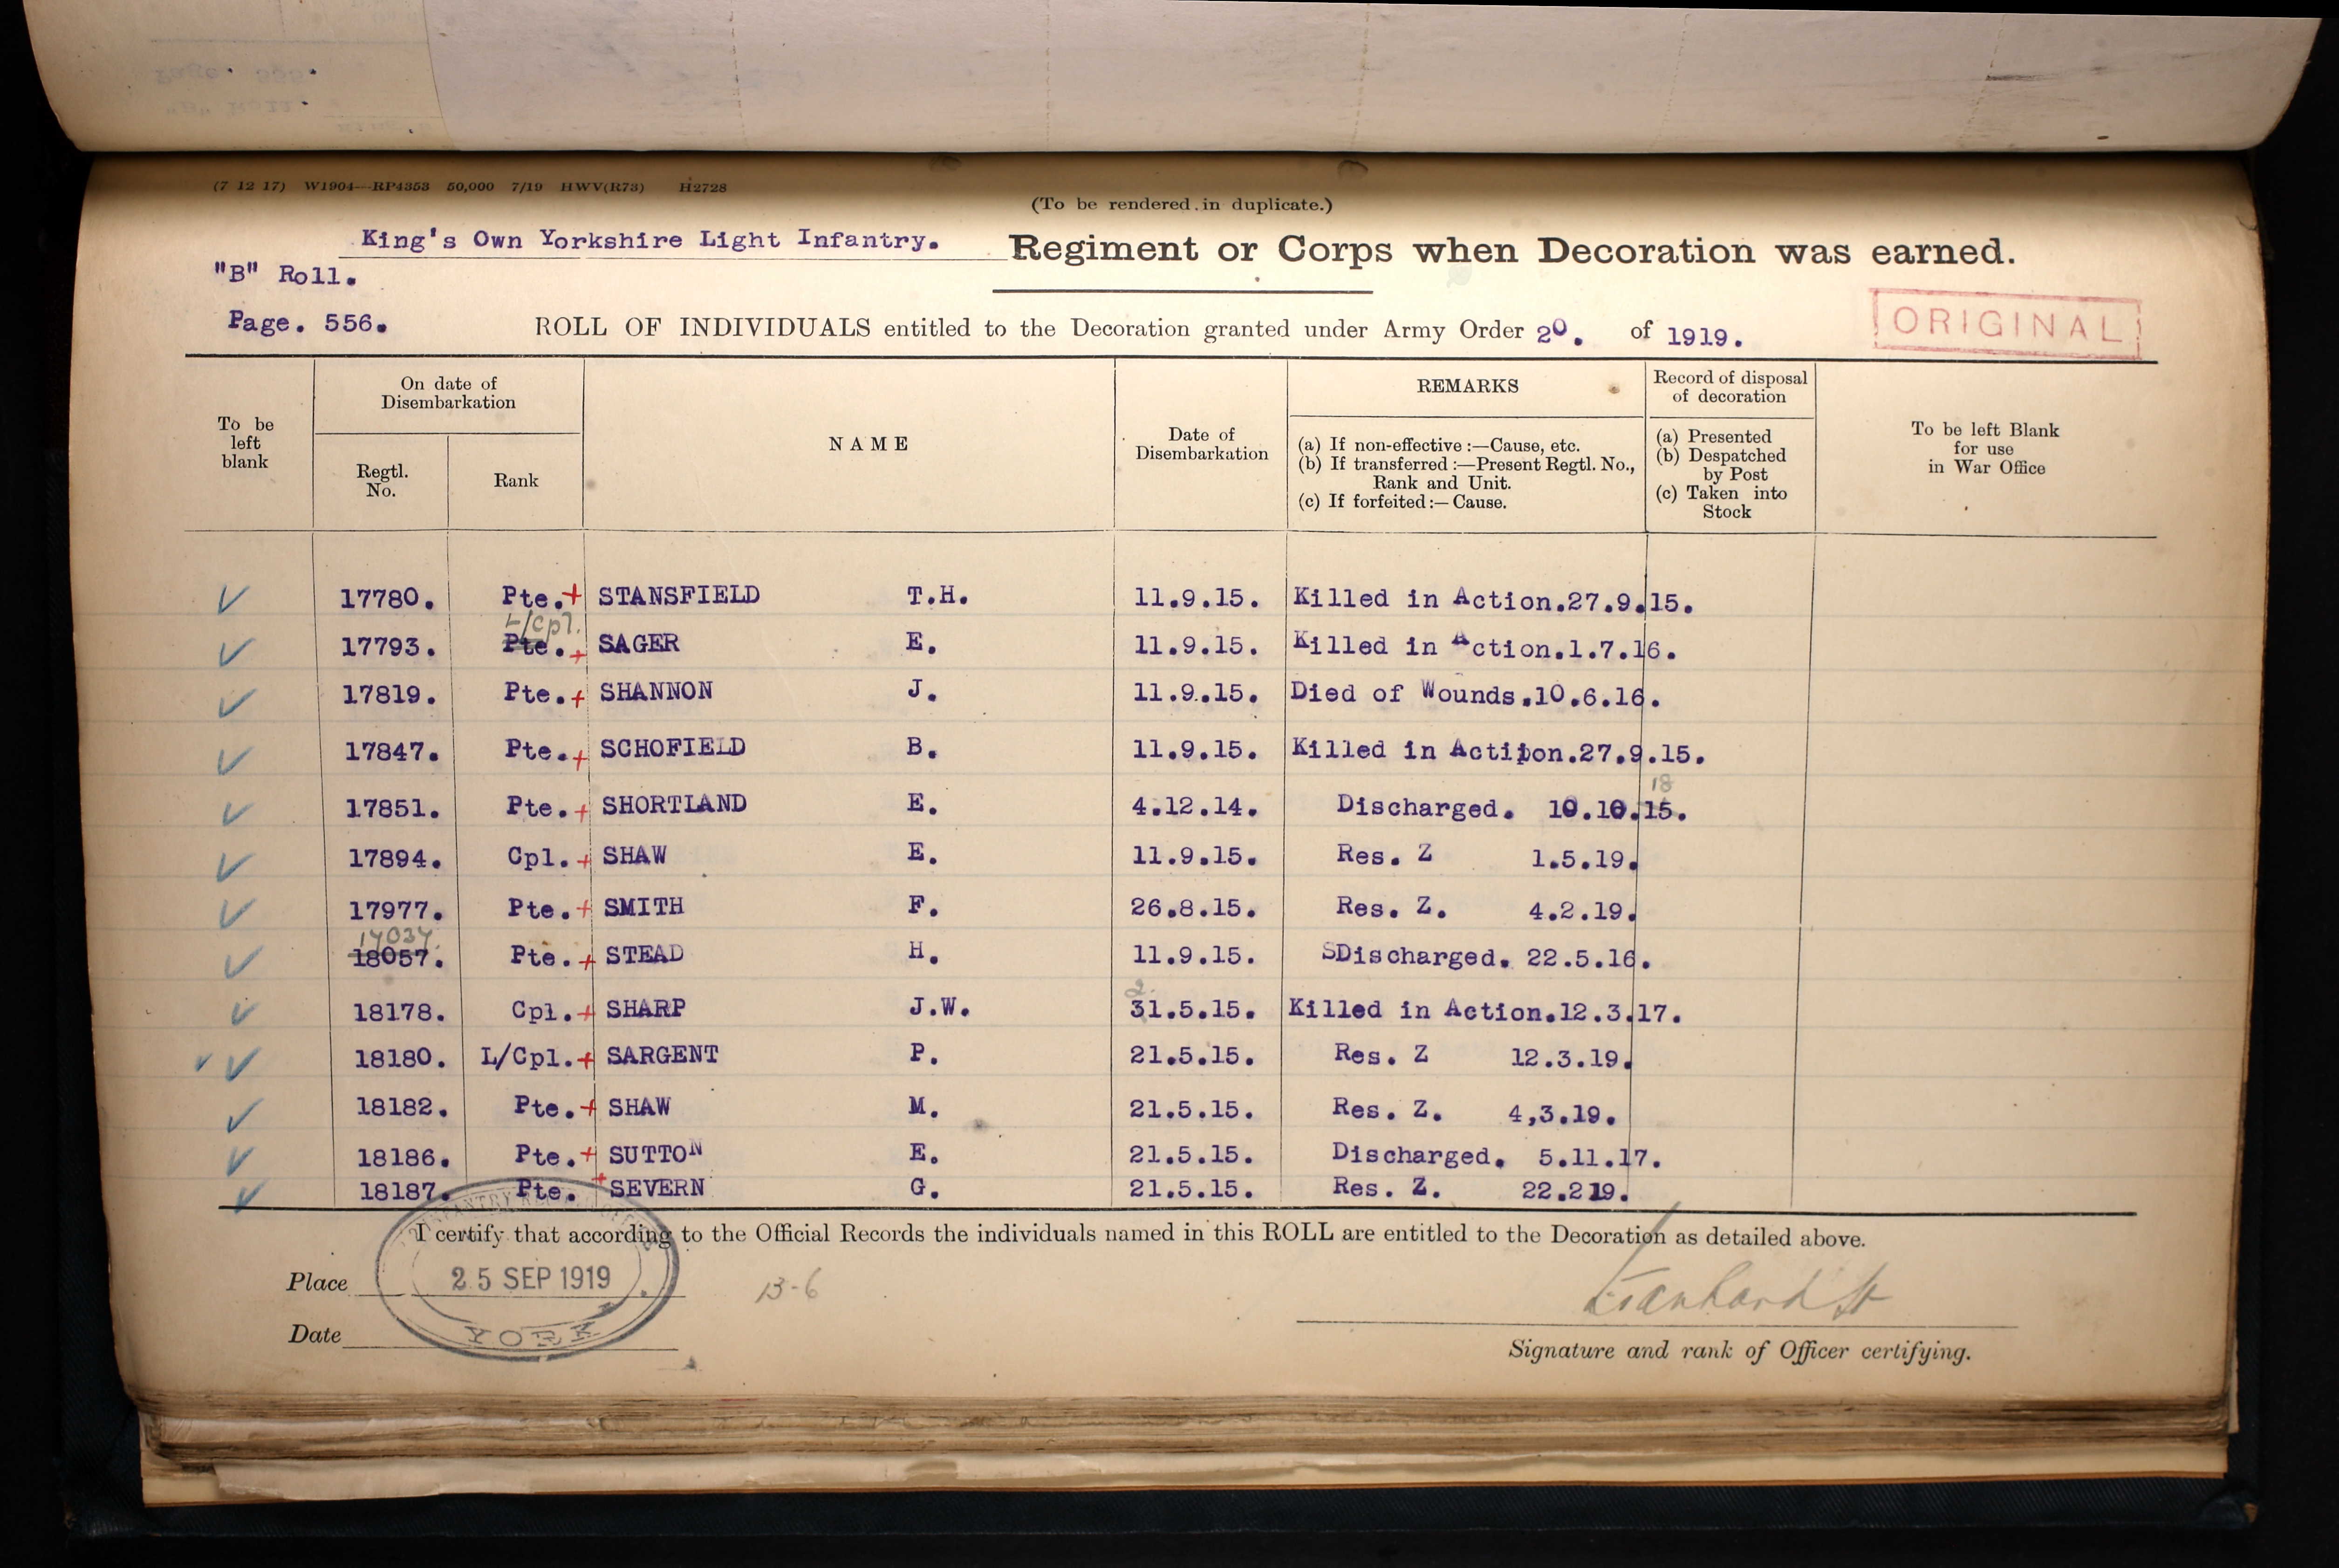 (7 12 17) W1904—RP4353 50,000 7/19 HWV(R73) H2728
(To be rendered in duplicate.)
King's Own Yorkshire Light Infantry. Regiment or Corps when Decoration was earned.
"B" Roll.
Page. 556.
ROLL OF INDIVIDUALS entitled to the Decoration granted under Army Order 20. of 1919.
ORIGINAL
To be left blank
On date of Disembarkation
Regtl. No.
Rank
NAME
Date of Disembarkation
REMARKS
(a) If non-effective :—Cause, etc.
(b) If transferred :—Present Regtl. No., Rank and Unit.
(c) If forfeited :— Cause.
Record of disposal of decoration
(a) Presented
(b) Despatched by Post
(c) Taken into Stock
To be left Blank for use in War Office
17780. Pte. + STANSFIELD T.H. 11.9.15. Killed in Action.27.9.15.
L/Cpl.
17793. Pte. + SAGER E. 11.9.15. Killed in Action.1.7.16.
17819. Pte. + SHANNON J. 11.9.15. Died of Wounds.10.6.16.
17847. Pte. + SCHOFIELD B. 11.9.15. Killed in Actipon.27.9.15.
18
17851. Pte. + SHORTLAND E. 4.12.14. Discharged. 10.10.15.
17894. Cpl. + SHAW E. 11.9.15. Res. Z 1.5.19.
17977. Pte. + SMITH F. 26.8.15. Res. Z. 4.2.19.
17037.
18057. Pte. + STEAD H. 11.9.15. SDischarged. 22.5.16.
2.
18178. Cpl. + SHARP J.W. 31.5.15. Killed in Action.12.3.17.
18180. L/Cpl. + SARGENT P. 21.5.15. Res. Z 12.3.19.
18182. Pte. + SHAW M. 21.5.15. Res. Z. 4,3.19.
18186. Pte. + SUTTON E. 21.5.15. Discharged. 5.11.17.
18187. Pte. + SEVERN G. 21.5.15. Res. Z. 22.219.
I certify that according to the Official Records the individuals named in this ROLL are entitled to the Decoration as detailed above.
Place
25 SEP 1919
13-6
YORK
Date
Signature and rank of Officer certifying.